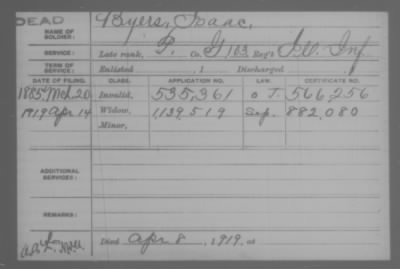 DEAD
Byers, Isaac,
NAME OF SOLDIER:
SERVICE: Late rank, P. Co. G, 103 Reg't Ill. Inf
TERM OF SERVICE: Enlisted , 1 Discharged
DATE OF FILING. CLASS. APPLICATION NO. LAW. CERTIFICATE NO.
1885, Mch 20 Invalid, 535,361 O J. 566,256
1919 Apr 14 Widow, 1,139,519 Sep. 882,080
Minor,
ADDITIONAL SERVICES:
REMARKS:
Died Apr 8, 1919, at